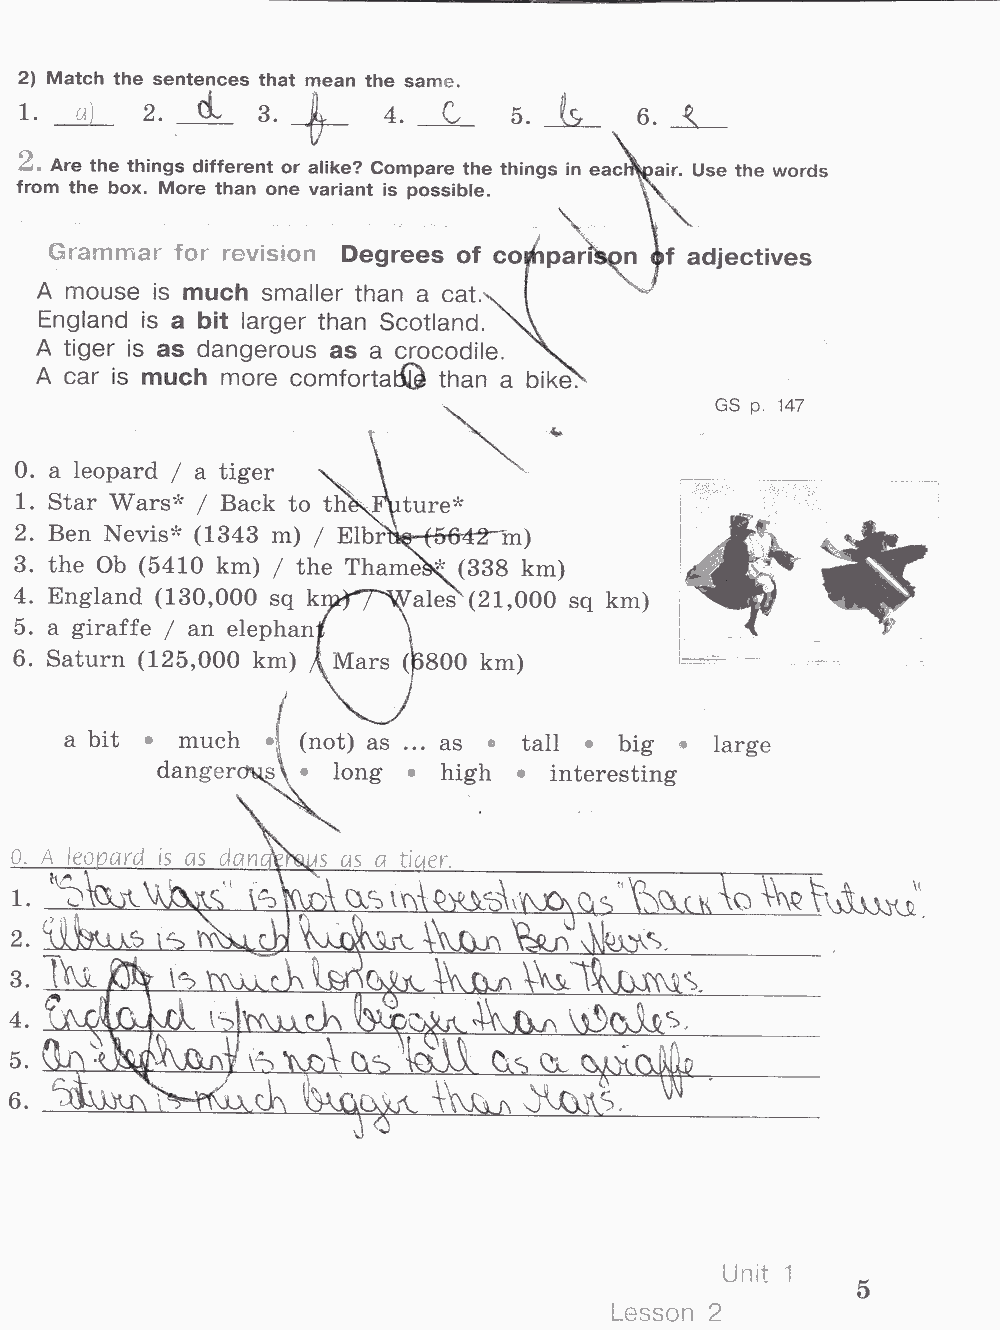 2) Match the sentences that mean the same.
1. a) 2. d 3. f 4. c 5. b 6. e
2. Are the things different or alike? Compare the things in each pair. Use the words
from the box. More than one variant is possible.
Grammar for revision Degrees of comparison of adjectives
A mouse is much smaller than a cat.
England is a bit larger than Scotland.
A tiger is as dangerous as a crocodile.
A car is much more comfortable than a bike.
GS p. 147
0. a leopard / a tiger
1. Star Wars* / Back to the Future*
2. Ben Nevis* (1343 m) / Elbrus (5642 m)
3. the Ob (5410 km) / the Thames* (338 km)
4. England (130,000 sq km) / Wales (21,000 sq km)
5. a giraffe / an elephant
6. Saturn (125,000 km) / Mars (6800 km)
a bit • much • (not) as ... as • tall • big • large
dangerous • long • high • interesting
0. A leopard is as dangerous as a tiger.
1. "Star Wars" is not as interesting as "Back to the Future".
2. Elbrus is much higher than Ben Nevis.
3. The Ob is much longer than the Thames.
4. England is much bigger than Wales.
5. An elephant is not as tall as a giraffe.
6. Saturn is much bigger than Mars.
Unit 1
5
Lesson 2